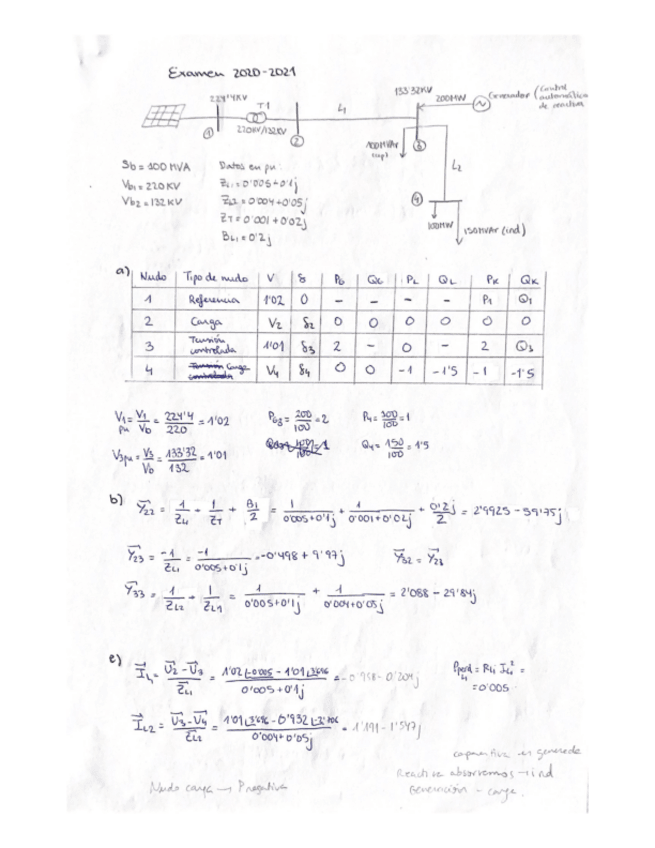 Examen 2020-2021
224'4KV
T1
220KV/132KV
L1
133'32KV
200MW
Generador (Control automático de reactiva
①
②
③
④
100MVAr (cap)
L2
100MW
150MVAr (ind)
Sb = 100 MVA
Vb1 = 220 KV
Vb2 = 132 KV
Datos en pu:
ZL1 = 0'005+0'1j
ZL2 = 0'004+0'05j
ZT = 0'001+0'02j
BL1 = 0'2j
a)
Nudo Tipo de nudo V δ PG QG PL QL PK QK
1 Referencia 1'02 0 - - - - P1 Q1
2 Carga V2 δ2 0 0 0 0 0 0
3 Tensión controlada 1'01 δ3 2 - 0 - 2 Q3
4 Carga V4 δ4 0 0 -1 -1'5 -1 -1'5
V1pu = V1/Vb = 224'4/220 = 1'02
PG3 = 200/100 = 2
P4 = 100/100 = 1
V3pu = V3/Vb = 133'32/132 = 1'01
Q4 = 150/100 = 1'5
b) Y22 = 1/ZL1 + 1/ZT + B1/2 = 1/0'005+0'1j + 1/0'001+0'02j + 0'2j/2 = 2'9925 - 59'75j
Y23 = -1/ZL1 = -1/0'005+0'1j = -0'498 + 9'97j
Y32 = Y23
Y33 = 1/ZL2 + 1/ZL1 = 1/0'005+0'1j + 1/0'004+0'05j = 2'088 - 29'84j
e) IL1 = U2-U3/ZL1 = 1'02∠-0'005 - 1'01∠3'616/0'005+0'1j = -0'958-0'204j
Pperd L1 = RL1 IL1² = = 0'005
IL2 = U3-U4/ZL2 = /0'004+0'05j = 1'191-1'547j
Nudo carga → P negativa
capacitiva en generada
Reactiva absorvemos → ind
Generación - carga.